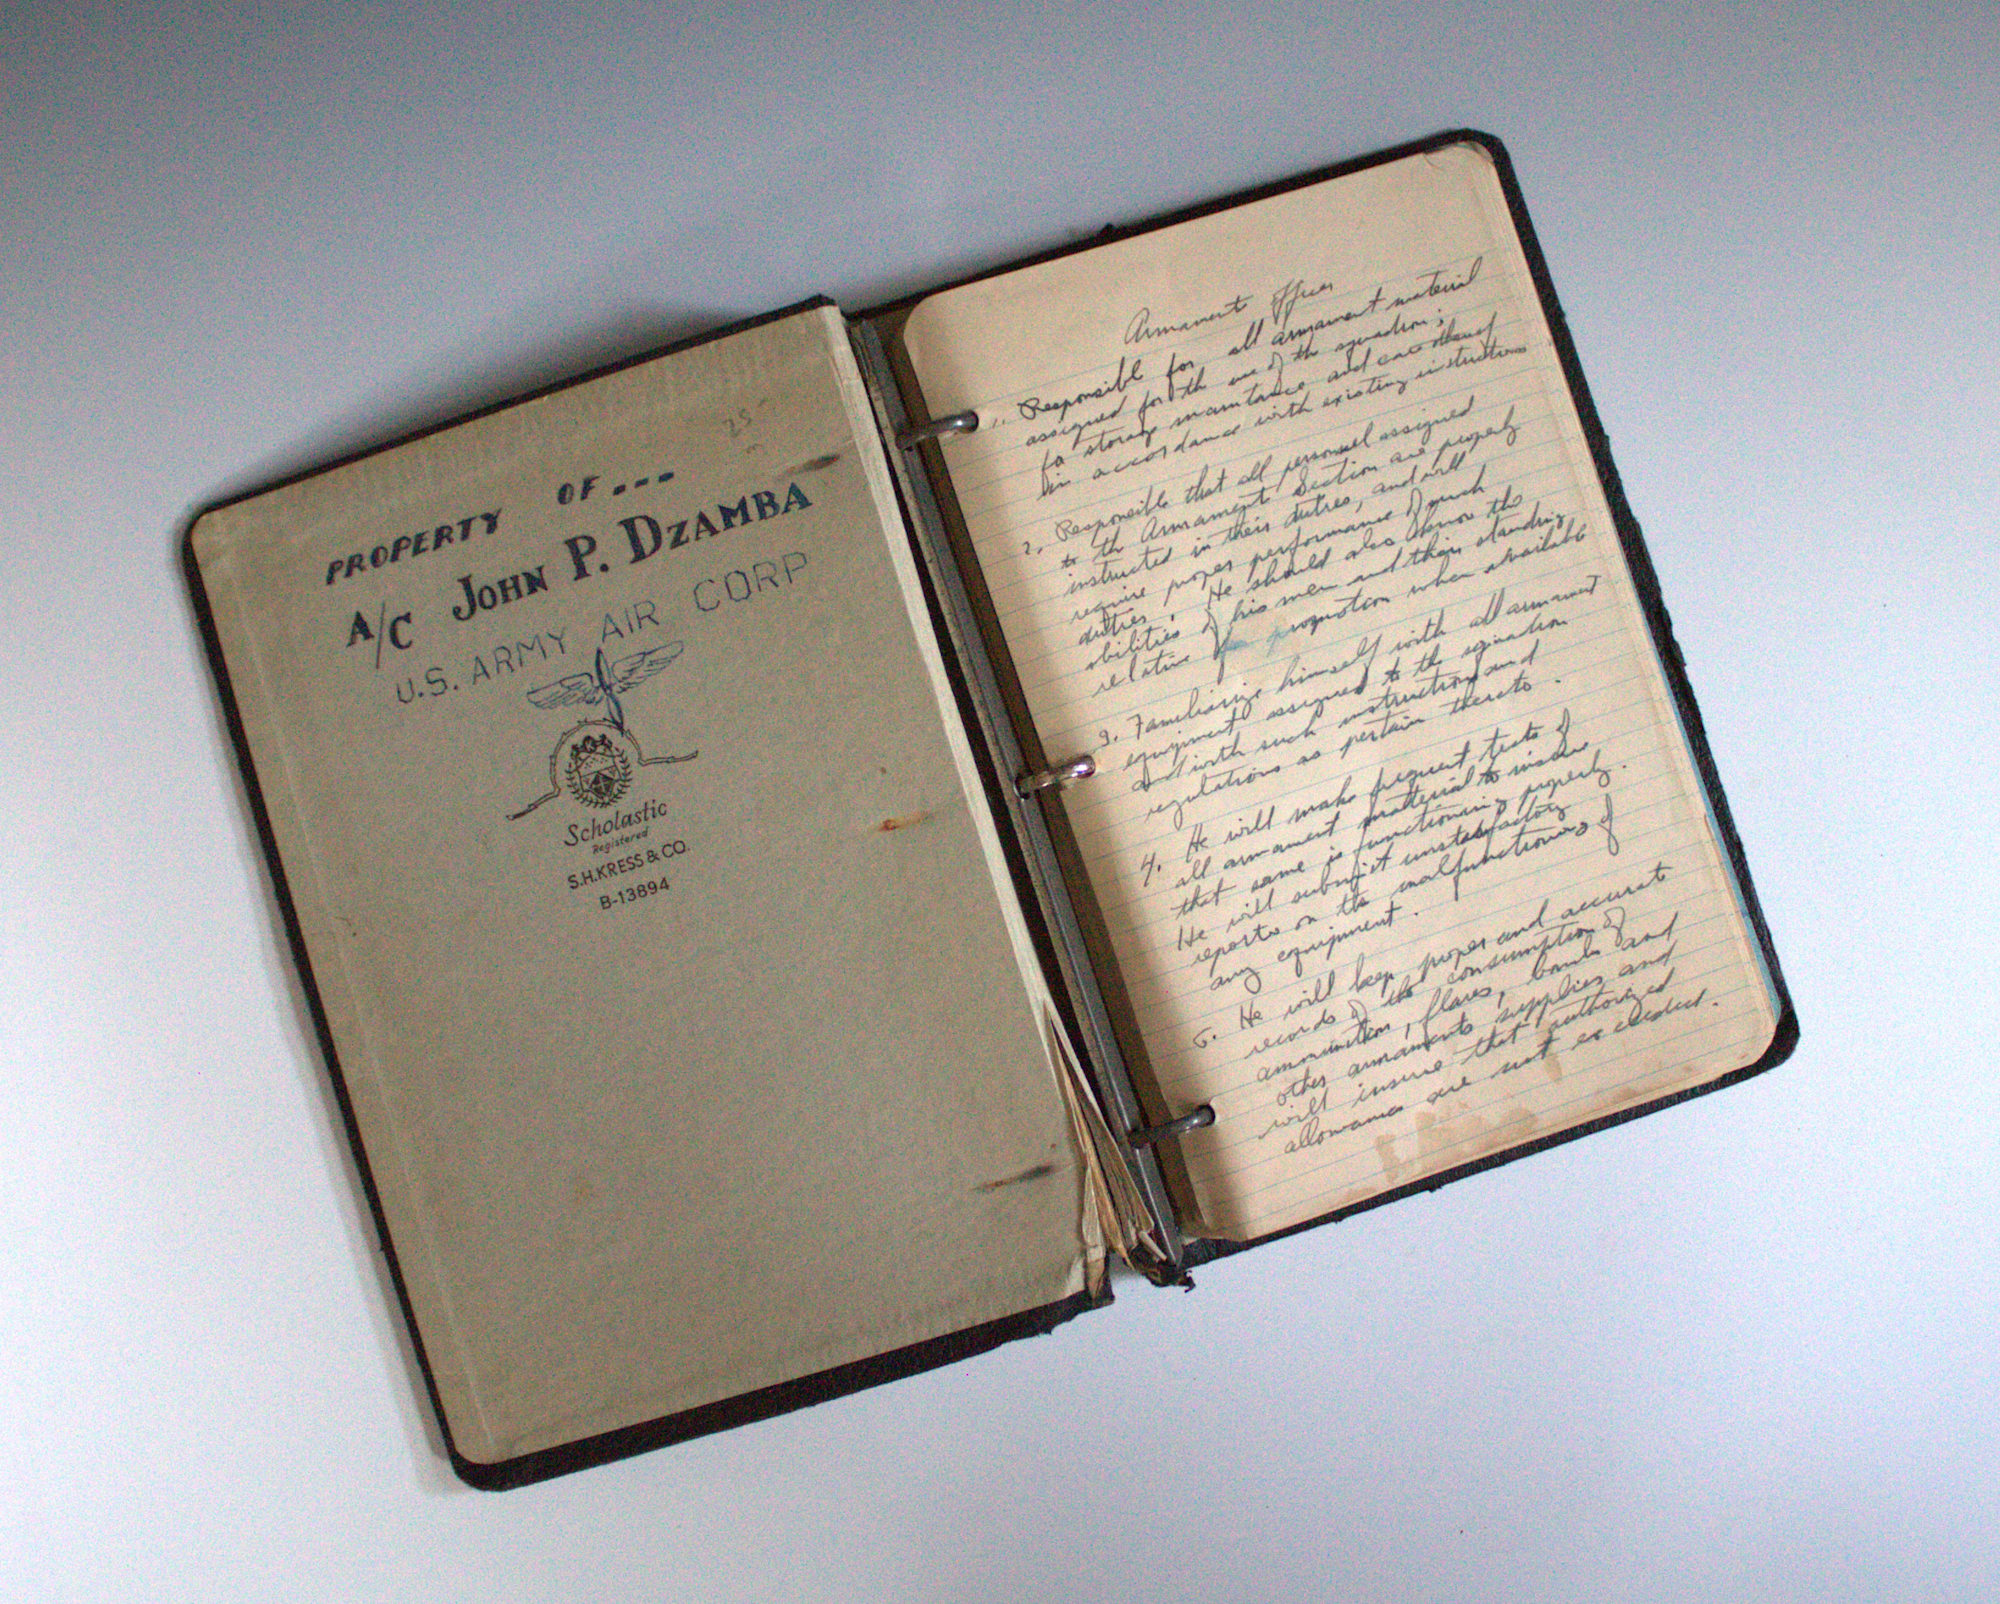 25
PROPERTY OF ---
A/C JOHN P. DZAMBA
U.S. ARMY AIR CORP
Scholastic
Registered
S.H. KRESS & CO.
B-13894
Armament Officer
1. Responsibl for all armament material
assigned for th use of th squadron;
for storage maintance and care thereof
in accordance with existing instructions
2. Responsible that all personnel assigned
to th Armament Section are properly
instructed in their duties, and will
require proper performance of such
duties. He should also know the
abilities of his men and their standing
relative for promotion when available
3. Familiarize himself with all armament
equipment assigned to the squadron
and with such instructions and
regulations as pertain thereto.
4. He will make frequent tests of
all armament material to insure
that same is functioning properly.
He will submit unsatisfactory
reports on the malfunctioning of
any equipment.
5. He will keep proper and accurate
records of the consumption of
ammunition, flares, bombs and
other armaments supplies and
will insure that authorized
allowances are not exceeded.